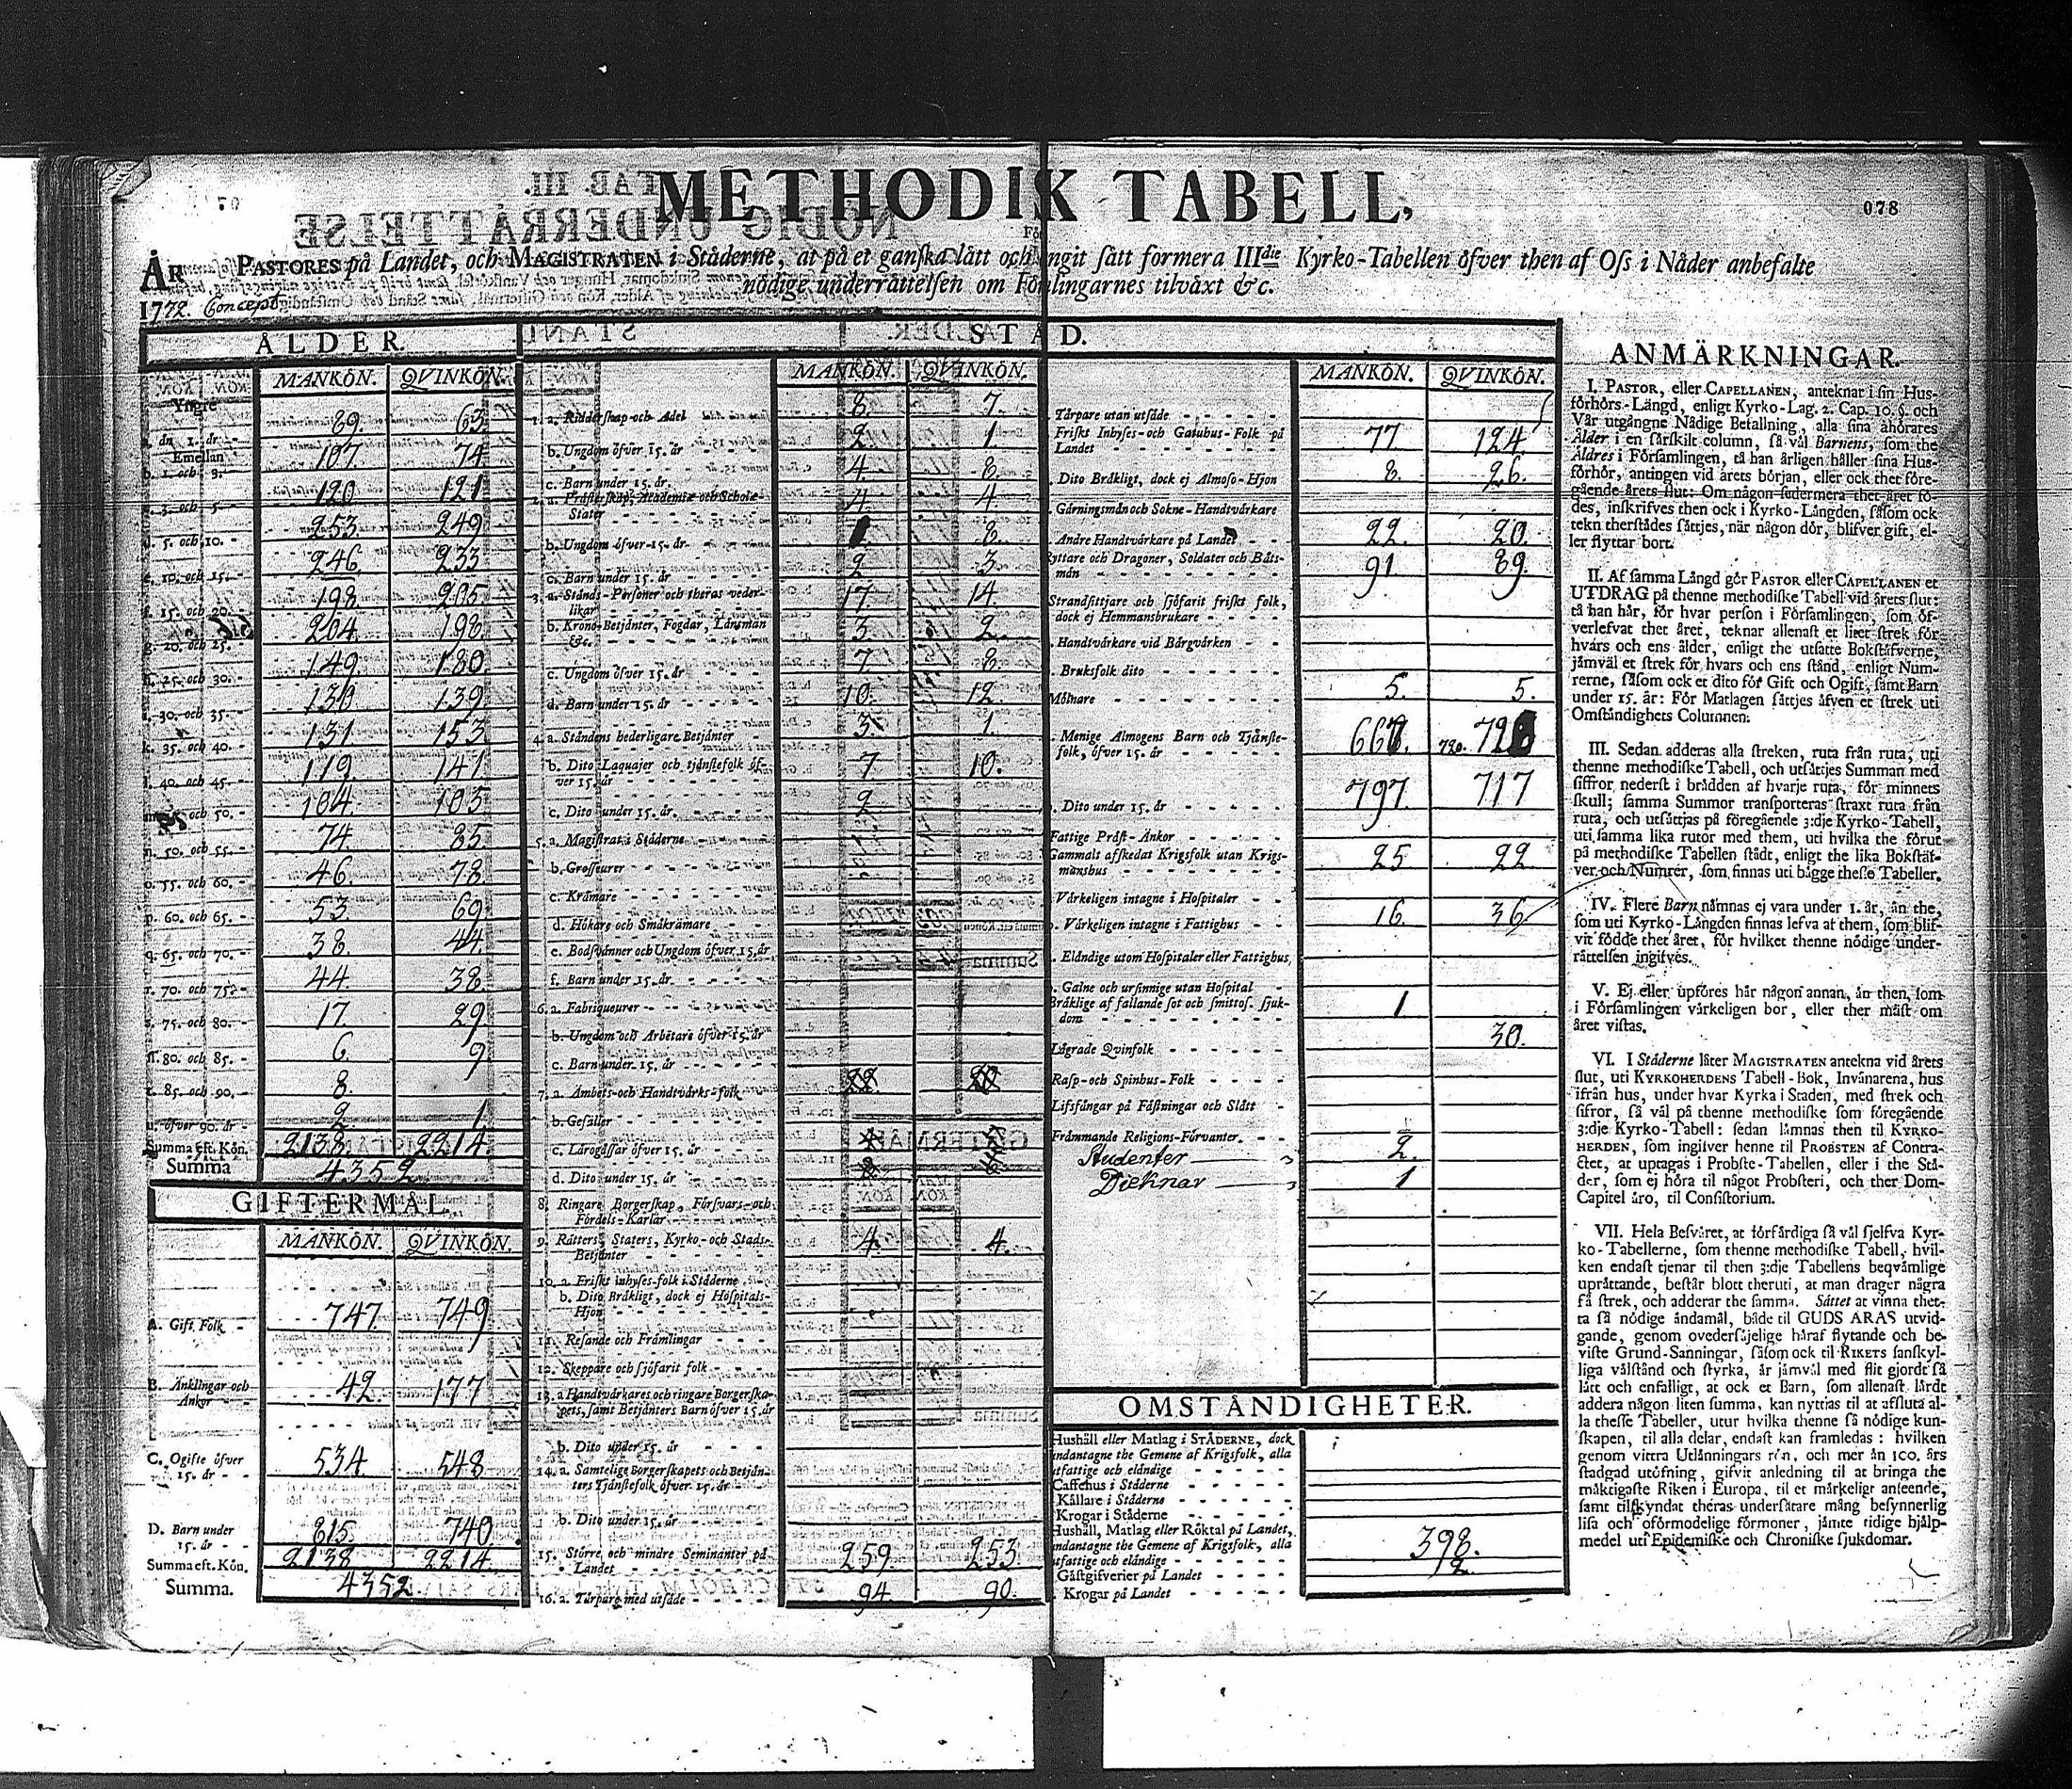 METHODIK TABELL,
078
ÅR PASTORES på Landet, och MAGISTRATEN i Ståderne, at på et ganska lått och ringit sått formera IIIdie Kyrko-Tabellen ôfver then af Oss i Nåder anbefalte
1772. Concept. nôdige underråttelsen om Fôrsamlingarnes tilvåxt &c.
ÅLDER.
MANKÔN. QVINKÔN.
Yngre
ån 1. år - 89. 63.
Emellan
b. 1. och 3. 107. 74.
3. och 5. 120. 121
d. 5. och 10. 253. 249.
e. 10. och 15. 246. 233
f. 15. och 20. 198. 205
g. 20. och 25. 204. 198
h. 25. och 30. 149. 180
i. 30. och 35. 130. 139
k. 35. och 40. 131. 153
l. 40. och 45. 119. 141
och 50. 104. 105
n. 50. och 55. 74. 85
o. 55. och 60. 46. 78.
p. 60. och 65. 53. 69.
q. 65. och 70. 38. 44.
r. 70. och 75. 44. 38.
s. 75. och 80. 17. 29
ff. 80. och 85. 6. 9
t. 85. och 90. 8.
u. ôfver 90. år - 2. 1.
Summa eft. Kôn. 2138. 2214.
Summa 4352
GIFTERMÅL.
MANKÔN. QVINKÔN.
A. Gift Folk - 747. 749
B. Änklingar och
Änkor 42. 177
C. Ogifte ôfver
15. år - - 534 548
D. Barn under
15. år - - 815. 740.
Summa eft. Kôn. 2138 2214.
Summa. 4352
STÅND.
MANKÔN. QVINKÔN.
1. a. Ridderskap och Adel 8. 7.
b. Ungdom ôfver 15. år 2. 1.
c. Barn under 15. år. 4. 8.
2. a. Pråsterskap, Academiæ och Scholæ-
Stater 4. 4.
b. Ungdom ôfver 15. år 8.
c. Barn under 15. år 2. 3.
3. a. Stånds-Personer och theras veder-
likar 17. 14.
b. Krono-Betjånter, Fogdar, Lånsmån
&c. 3. 2.
c. Ungdom ôfver 15. år 7. 8.
d. Barn under 15. år 10. 12.
4. a. Ståndens hederligare Betjånter 3. 1.
b. Dito Laquajer och tjånstefolk ôf-
ver 15. år 7 10.
c. Dito under 15. år 2
5. a. Magistrat i Ståderne
b. Grosseurer
c. Kråmare
d. Hôkare och Småkråmare
e. Bodsvånner och Ungdom ôfver 15. år
f. Barn under 15. år
6. a. Fabriqueurer
b. Ungdom och Arbetare ôfver 15. år
c. Barn under 15. år
7. a. Åmbets- och Handtvårks-folk
b. Gesåller
c. Lårogåssar ôfver 15. år
d. Dito under 15. år
8. Ringare Borgerskap, Fôrsvars- och
Fôrdels-Karlar
9. Råttens, Staters, Kyrko- och Stads-
Betjånter 4. 4.
10. a. Friskt inhyses-folk i Ståderne
b. Dito Bråkligt, dock ej Hospitals-
Hjon
11. Resande och Fråmlingar
12. Skeppare och sjôfarit folk
13. a. Handtvårkares och ringare Borgerska-
pets, samt Betjånters Barn ôfver 15. år
b. Dito under 15. år
14. a. Samtelige Borgerskapets och Betjån-
ters Tjånstefolk ôfver 15. år
b. Dito under 15. år
15. Stôrre och mindre Seminanter på
Landet 259. 253.
16. a. Tårpare med utsåde 94. 90.
MANKÔN. QVINKÔN.
Tårpare utan utsåde
Friskt Inhyses- och Gatuhus-Folk på
Landet 77. 124.
Dito Bråkligt, dock ej Almoso-Hjon 8. 26.
Gårningsmån och Sokne-Handtvårkare
Andre Handtvårkare på Landet 22. 20.
Ryttare och Dragoner, Soldater och Båts-
mån 91 89.
Strandsittjare och sjôfarit friskt folk,
dock ej Hemmansbrukare
Handtvårkare vid Bårgvårken
Bruksfolk dito
Môlnare 5. 5.
Menige Almogens Barn och Tjånste-
folk, ôfver 15. år
Dito under 15. år 797. 717
Fattige Pråst-Ånkor
Gammalt afskedat Krigsfolk utan Krigs-
manshus 25 22
Vårkeligen intagne i Hospitaler
Vårkeligen intagne i Fattighus 16. 36.
Elåndige utom Hospitaler eller Fattighus
Galne och ursinnige utan Hospital
Bråklige af fallande sot och smittos. sjuk-
dom 1
Lågrade Qvinfolk 30.
Rasp- och Spinhus-Folk
Lifsfångar på Fåstningar och Slått
Fråmmande Religions-Fôrvanter.
Studenter 2.
Dieknar 1
OMSTÅNDIGHETER.
Hushåll eller Matlag i STÅDERNE, dock
undantagne the Gemene af Krigsfolk, alla
utfattige och elåndige
Caffehus i Ståderne
Kållare i Ståderne
Krogar i Ståderne
Hushåll, Matlag eller Rôktal på Landet,
undantagne the Gemene af Krigsfolk, alla
utfattige och elåndige 398.
Gåstgifverier på Landet 2.
Krogar på Landet
ANMÄRKNINGAR.
I. PASTOR, eller CAPELLANEN, anteknar i sin Hus-
fôrhôrs-Långd, enligt Kyrko-Lag. 2. Cap. 10. §. och
Vår utgångne Nådige Befallning, alla sina åhôrares
Ålder i en sårskilt column, så vål Barnens, som the
Åldres i Fôrsamlingen, tå han årligen håller sina Hus-
fôrhôr, antingen vid årets bôrjan, eller ock thet fôre-
gående årets slut: Om någon sedermera thet året fô-
des, inskrifves then ock i Kyrko-Långden, såsom ock
tekn therstådes såttjes, når någon dôr, blifver gift, el-
ler flyttar bort.
II. Af samma Långd gôr PASTOR eller CAPELLANEN et
UTDRAG på thenne methodiske Tabell vid årets slut:
tå han hår, fôr hvar person i Fôrsamlingen, som ôf-
verlefvat thet året, teknar allenast et litet strek fôr
hvars och ens ålder, enligt the utsatte Bokståfverne,
jåmvål et strek fôr hvars och ens stånd, enligt Num-
rerne, såsom ock et dito fôr Gift och Ogift, samt Barn
under 15. år: Fôr Matlagen såttjes åfven et strek uti
Omståndighets Columnen.
III. Sedan adderas alla streken, ruta från ruta, uti
thenne methodiske Tabell, och utsåttjes Summan med
siffror nederst i brådden af hvarje ruta, fôr minnets
skull; samma Summor transporteras straxt ruta från
ruta, och utsåttjas på fôregående 3:dje Kyrko-Tabell,
uti samma lika rutor med them, uti hvilka the fôrut
på methodiske Tabellen stådt, enligt the lika Bokståf-
ver och Numrer, som finnas uti bågge thesse Tabeller.
IV. Flere Barn nåmnas ej vara under 1. år, ån the,
som uti Kyrko-Långden finnas lefva af them, som blif-
vit fôdde thet året, fôr hvilket thenne nôdige under-
råttelsen ingifves.
V. Ej eller upfôres hår någon annan, ån then, som
i Fôrsamlingen vårkeligen bor, eller ther måst om
året vistas.
VI. I Ståderne låter MAGISTRATEN antekna vid årets
slut, uti KYRKOHERDENS Tabell-Bok, Invånarena, hus
ifrån hus, under hvar Kyrka i Staden, med strek och
sifror, så vål på thenne methodiske som fôregående
3:dje Kyrko-Tabell: sedan låmnas then til KYRKO-
HERDEN, som ingifver henne til PROBSTEN af Contra-
ctet, at uptagas i Probste-Tabellen, eller i the Stå-
der, som ej hôra til något Probsteri, och ther Dom-
Capitel åro, til Consistorium.
VII. Hela Besvåret, at fôrfårdiga så vål sjelfva Kyr-
ko-Tabellerne, som thenne methodiske Tabell, hvil-
ken endast tjenar til then 3:dje Tabellens beqvåmlige
upråttande, består blott theruti, at man drager några
få strek, och adderar the samma. Såttet at vinna thet-
ta så nôdige åndamål, både til GUDS ÄRAS utvid-
gande, genom ovedersåjelige håraf flytande och be-
viste Grund-Sanningar, såsom ock til RIKETS sanskyl-
liga vålstånd och styrka, år jåmvål med flit gjordt så
lått och enfalligt, at ock et Barn, som allenast lårdt
addera någon liten summa, kan nyttias til at afsluta al-
la thesse Tabeller, utur hvilka thenne så nôdige kun-
skapen, til alla delar, endast kan framledas: hvilken
genom vittra Utlånningars rôn, och mer ån 100. års
stadgad utôfning, gifvit anledning til at bringa the
måktigaste Riken i Europa, til et mårkeligt anseende,
samt tilskyndat theras undersåtare mång besynnerlig
lisa och ofôrmodelige fôrmoner, jåmte tidige hjålp-
medel uti Epidemiske och Chroniske sjukdomar.